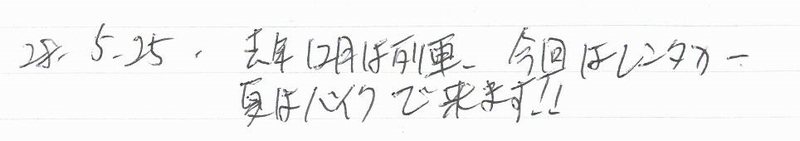 28.5.25. 去年12月は列車、今回はレンタカー
夏はバイクで来ます!!